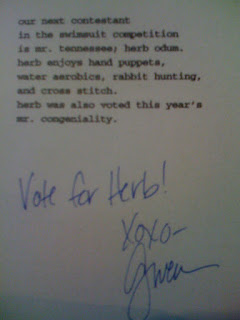 our next contestant
in the swimsuit competition
is mr. tennessee; herb odum.
herb enjoys hand puppets,
water aerobics, rabbit hunting,
and cross stitch.
herb was also voted this year's
mr. congeniality.
Vote for Herb!
xoxo-
Gwen